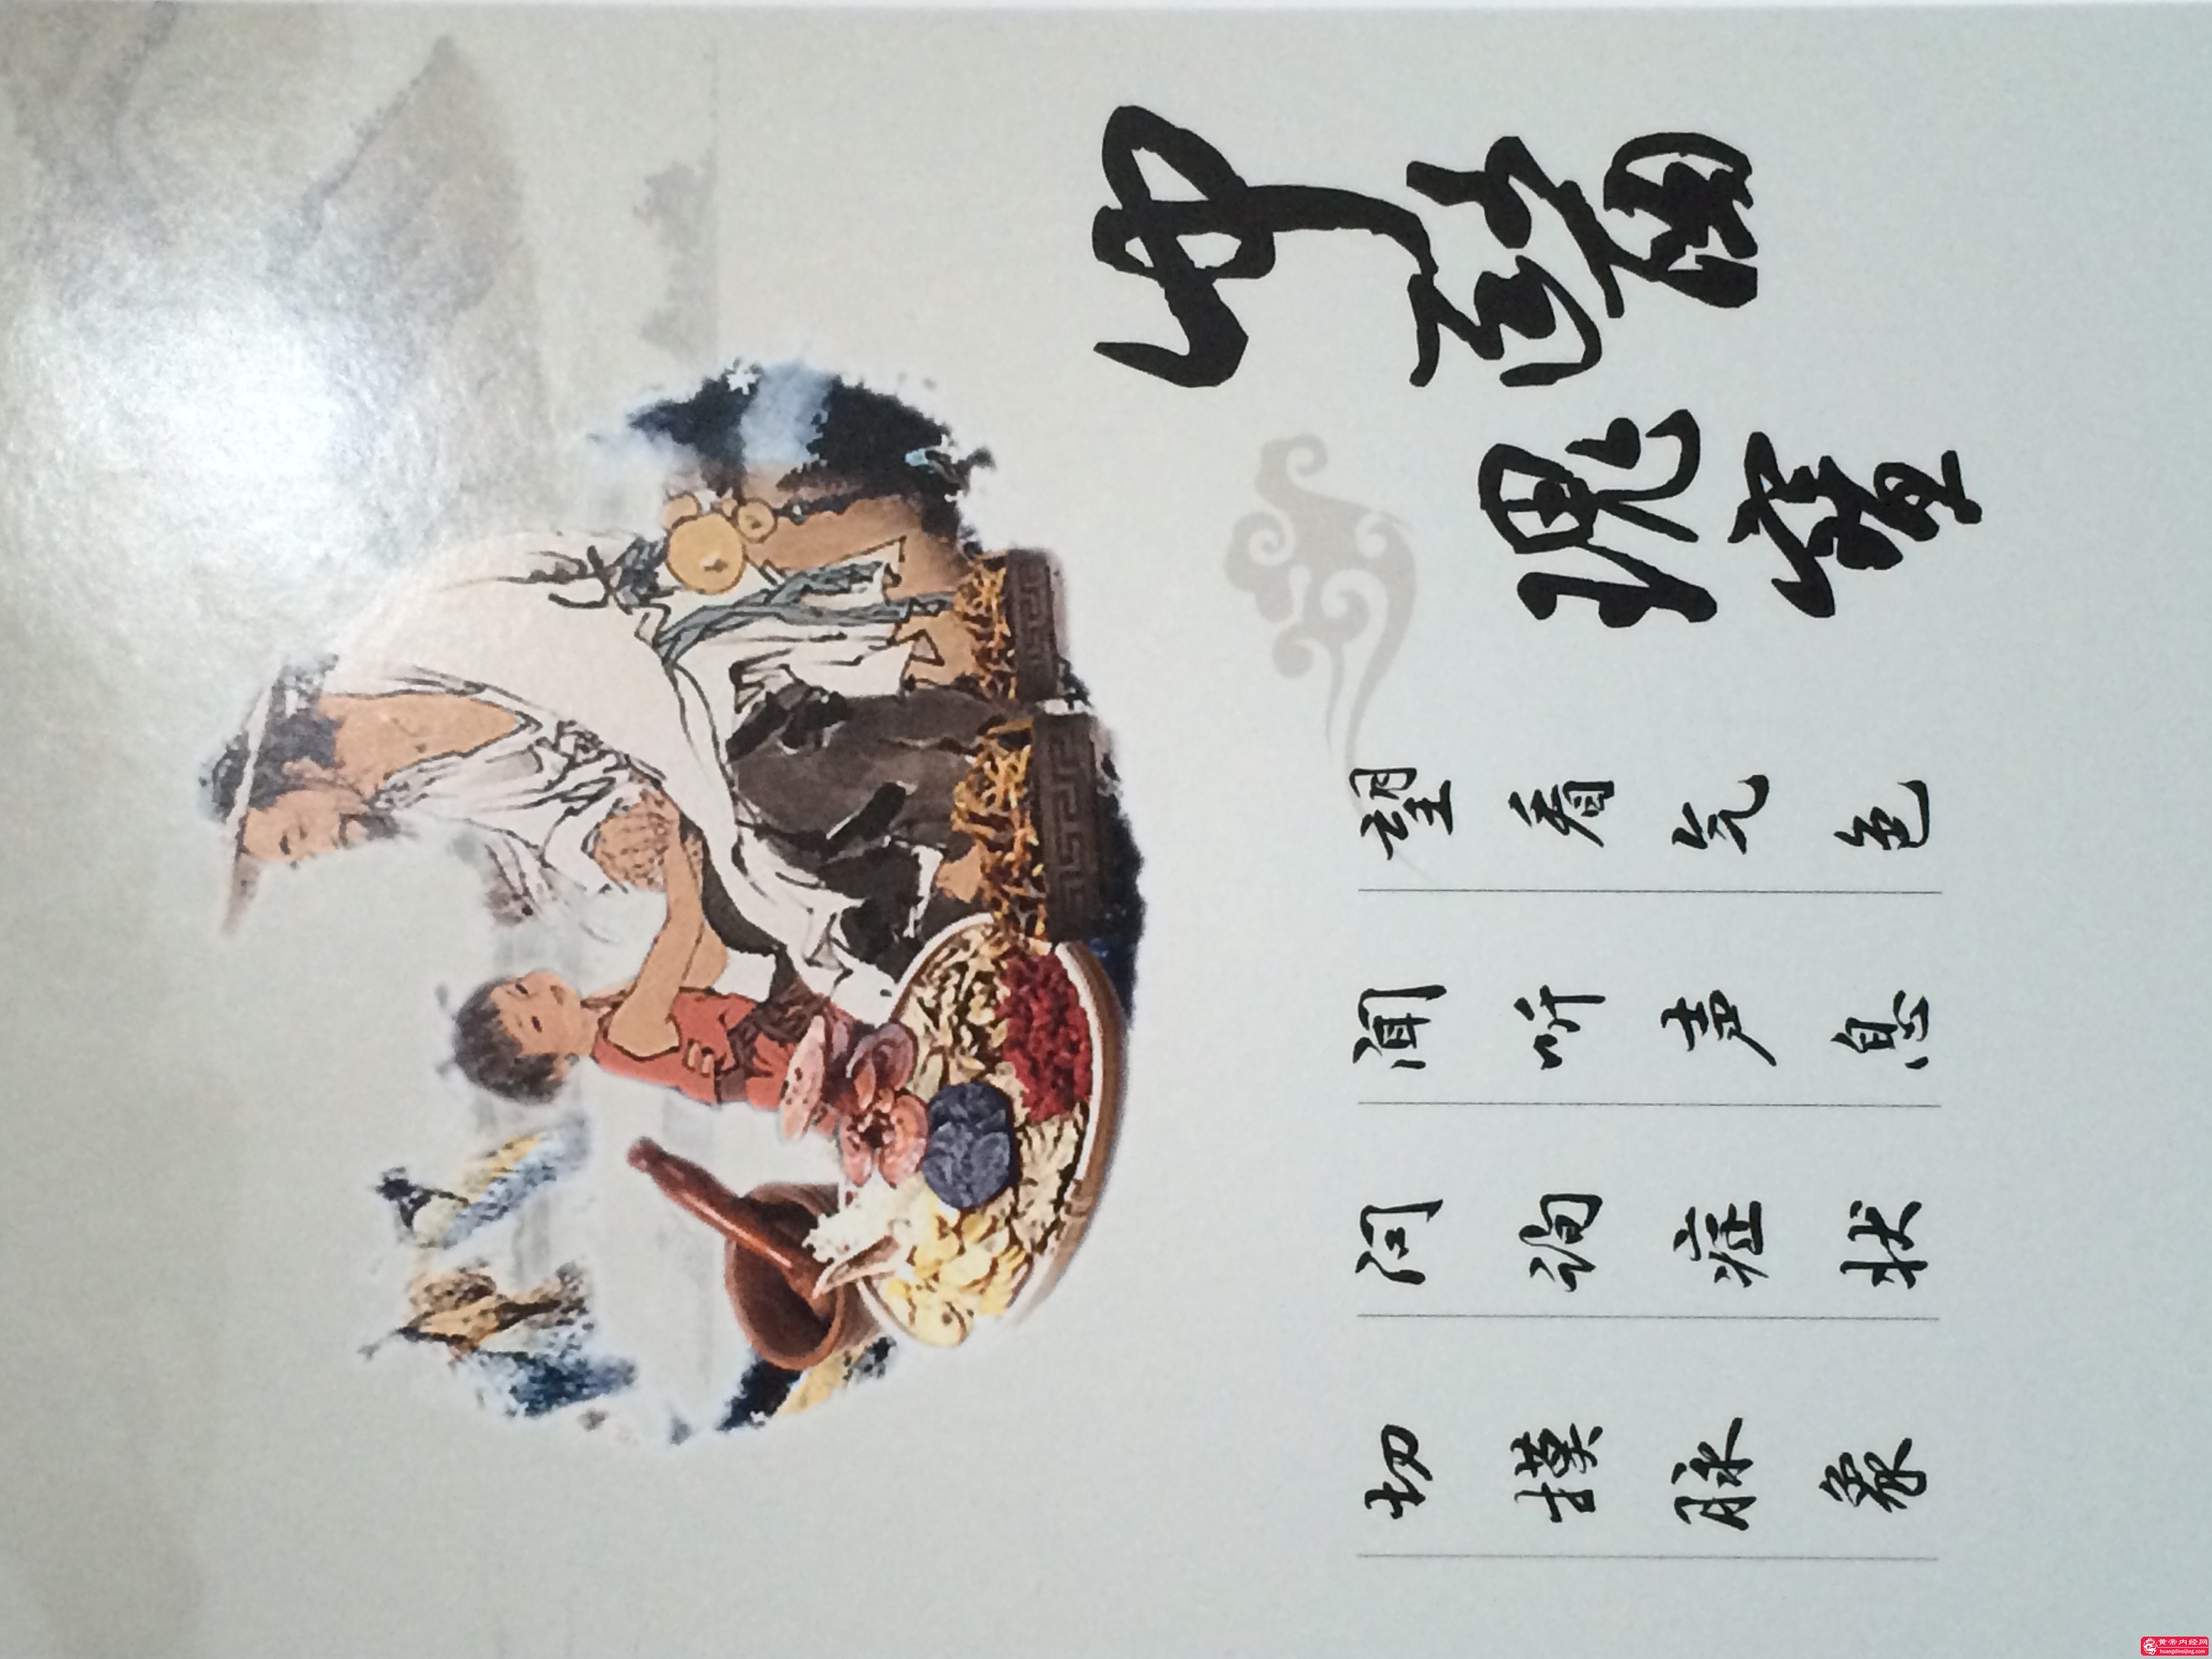 中醫
瑰寶
望看气色
闻听声息
问询症状
切摸脉象
黄帝内经网
huangdineijing.com